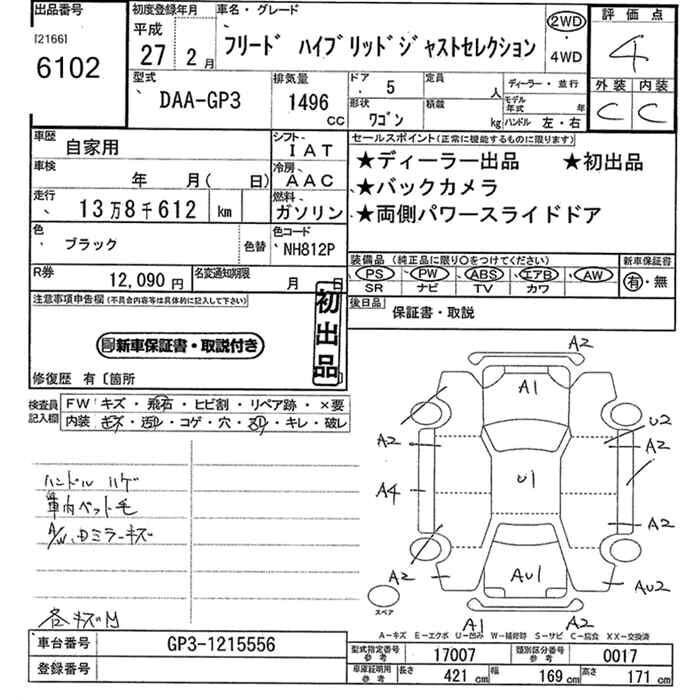 出品番号
[2166]
6102
初度登録年月
平成
27 2 月
車名・グレード
フリード ハイブリッドジャストセレクション
2WD
・
4WD
評価点
4
外装 内装
C C
型式
DAA-GP3
排気量
1496
CC
ドア 5
形状
ワゴン
定員 人
積載 kg
ディーラー・並行
モデル年式 年
ハンドル 左・右
車歴 自家用
シフト IAT
車検 年 月( 日)
冷房 AAC
走行 13万8千612 km
燃料 ガソリン
色 ブラック 色替
色コード NH812P
R券 12,090円
名変通知期限 月 日
セールスポイント(正常に機能するものに限ります)
★ディーラー出品 ★初出品
★バックカメラ
★両側パワースライドドア
装備品 (純正品に限り○をつけてください)
PS・PW・ABS・エアB・AW
SR ナビ TV カワ
新車保証書
有・無
後日品
保証書・取説
注意事項申告欄(不具合内容等は具体的に記入して下さい)
同新車保証書・取説付き
初出品
修復歴 有〔箇所
検査員記入欄
FW キズ・飛石・ヒビ割・リペア跡・×要
内装 キズ・汚レ・コゲ・穴・スリ・キレ・破レ
ハンドル ハゲ
車内ペット毛
A/W、Dミラーキズ
各キズM
A2
A1
A2
U2
A2
A4
U1
A2
A2
AU1
AU2
スペア
A1
A2
A-キズ E-エクボ U-凹み W-補修跡 S-サビ C-腐食 XX-交換済
車台番号 GP3-1215556
登録番号
型式指定番号参考 17007
類別区分番号参考 0017
車庫証明用参考
長さ 421 cm
幅 169 cm
高さ 171 cm